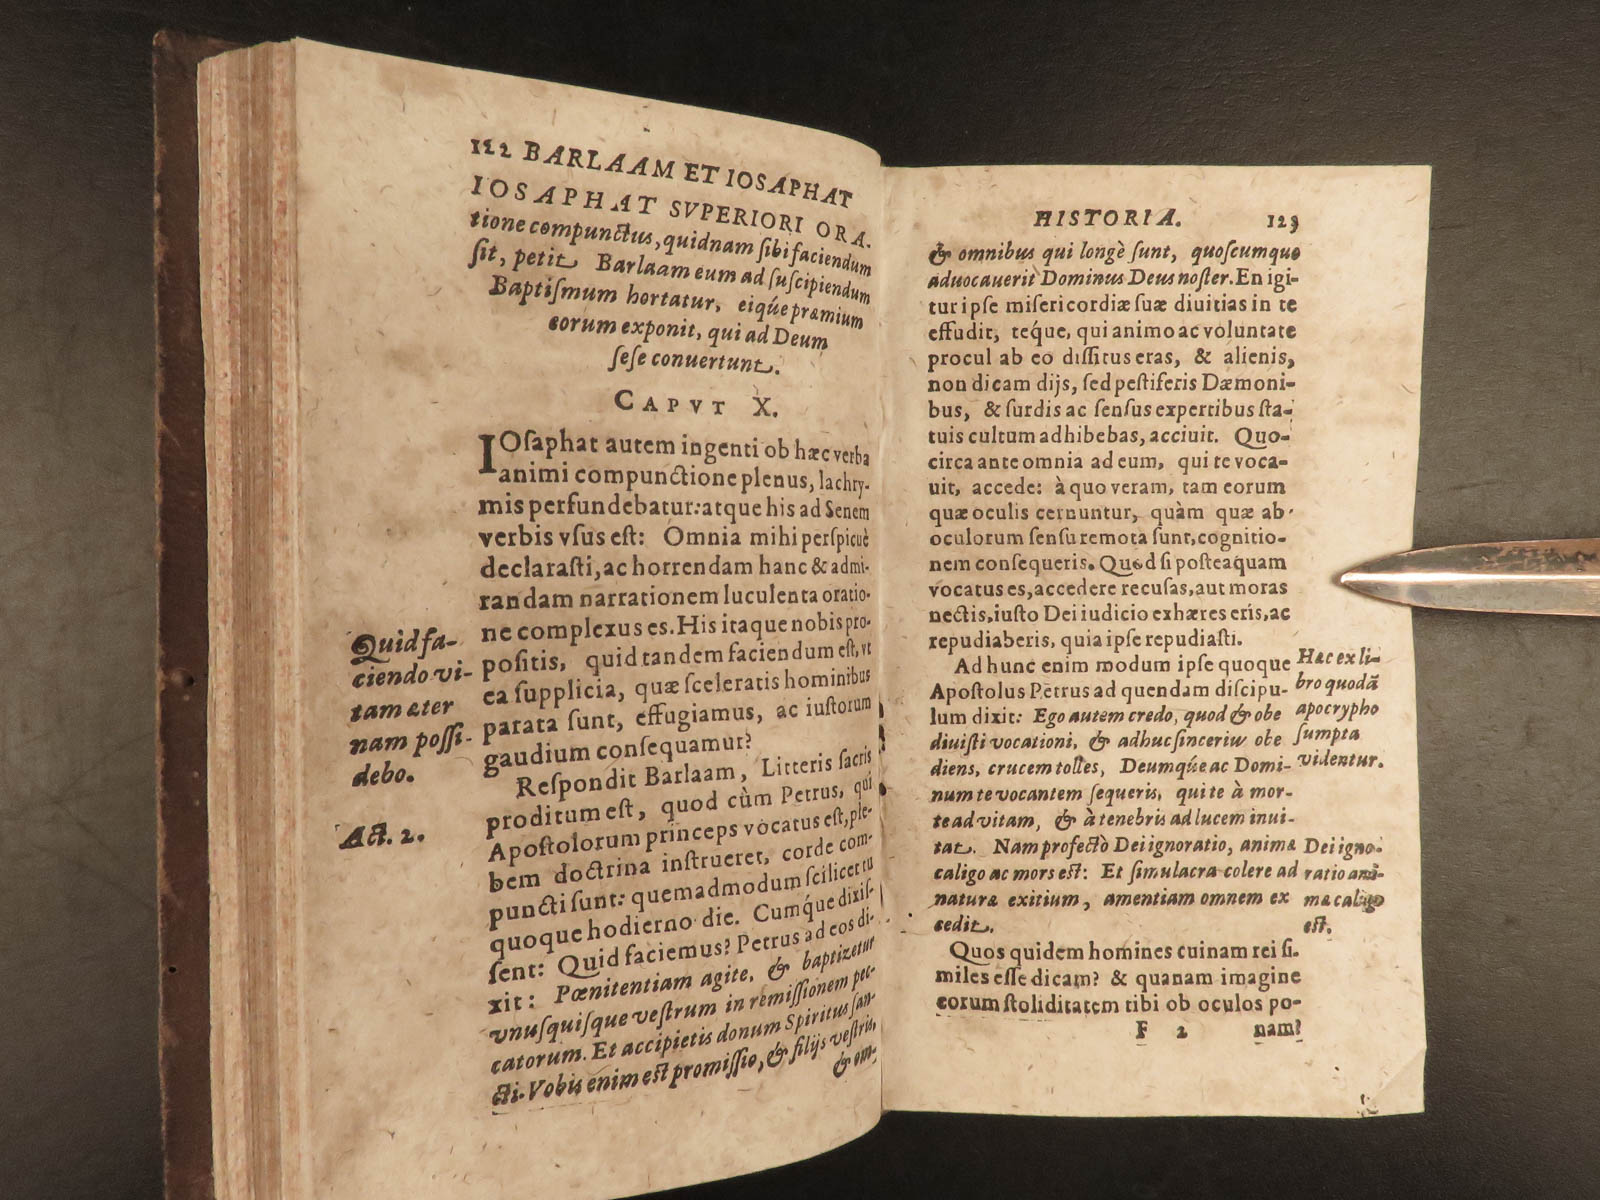 122 BARLAAM ET IOSAPHAT
IOSAPHAT SVPERIORI ORA.
tione compunctus, quidnam sibi faciendum
sit, petit. Barlaam eum ad suscipiendum
Baptismum hortatur, eiq́ue præmium
eorum exponit, qui ad Deum
sese conuertunt.
CAPVT X.
IOsaphat autem ingenti ob hæc verba
animi compunctione plenus, lachry-
mis perfundebatur: atque his ad Senem
verbis vsus est: Omnia mihi perspicuè
declarasti, ac horrendam hanc & admi-
randam narrationem luculenta oratio-
ne complexus es. His itaque nobis pro-
positis, quid tandem faciendum est, vt
ea supplicia, quæ sceleratis hominibus
parata sunt, effugiamus, ac iustorum
gaudium consequamur?
Quid fa-
ciendo vi-
tam æter
nam possi-
debo.
Respondit Barlaam, Litteris sacris
proditum est, quod cùm Petrus, qui
Apostolorum princeps vocatus est, ple-
bem doctrina instrueret, corde com-
puncti sunt: quemadmodum scilicet tu
quoque hodierno die. Cumq́ue dixis-
sent: Quid faciemus? Petrus ad eos di-
xit: Pœnitentiam agite, & baptizetur
vnusquisque vestrum in remissionem pec-
catorum. Et accipietis donum Spiritus san-
cti. Vobis enim est promissio, & filijs vestris,
& om-
Act. 2.
HISTORIA. 123
& omnibus qui longè sunt, quoscumque
aduocauerit Dominus Deus noster. En igi-
tur ipse misericordiæ suæ diuitias in te
effudit, teque, qui animo ac voluntate
procul ab eo dissitus eras, & alienis,
non dicam dijs, sed pestiferis Dæmoni-
bus, & surdis ac sensus expertibus sta-
tuis cultum adhibebas, acciuit. Quo-
circa ante omnia ad eum, qui te voca-
uit, accede: à quo veram, tam eorum
quæ oculis cernuntur, quàm quæ ab
oculorum sensu remota sunt, cognitio-
nem consequeris. Quod si posteaquam
vocatus es, accedere recusas, aut moras
nectis, iusto Dei iudicio exhæres eris, ac
repudiaberis, quia ipse repudiasti.
Ad hunc enim modum ipse quoque
Apostolus Petrus ad quendam discipu-
lum dixit: Ego autem credo, quod & obe
diuisti vocationi, & adhuc sincerius obe
diens, crucem tolles, Deumq́ue ac Domi-
num te vocantem sequeris, qui te à mor-
te ad vitam, & à tenebris ad lucem inui-
tat. Nam profectò Dei ignoratio, animæ
caligo ac mors est: Et simulacra colere ad
naturæ exitium, amentiam omnem ex
cedit.
Hæc ex li-
bro quodã
apocrypho
sumpta
videntur.
Dei igno-
ratio ani-
mæ caligo
est.
Quos quidem homines cuinam rei si-
miles esse dicam? & quanam imagine
eorum stoliditatem tibi ob oculos po-
F 2 nam?